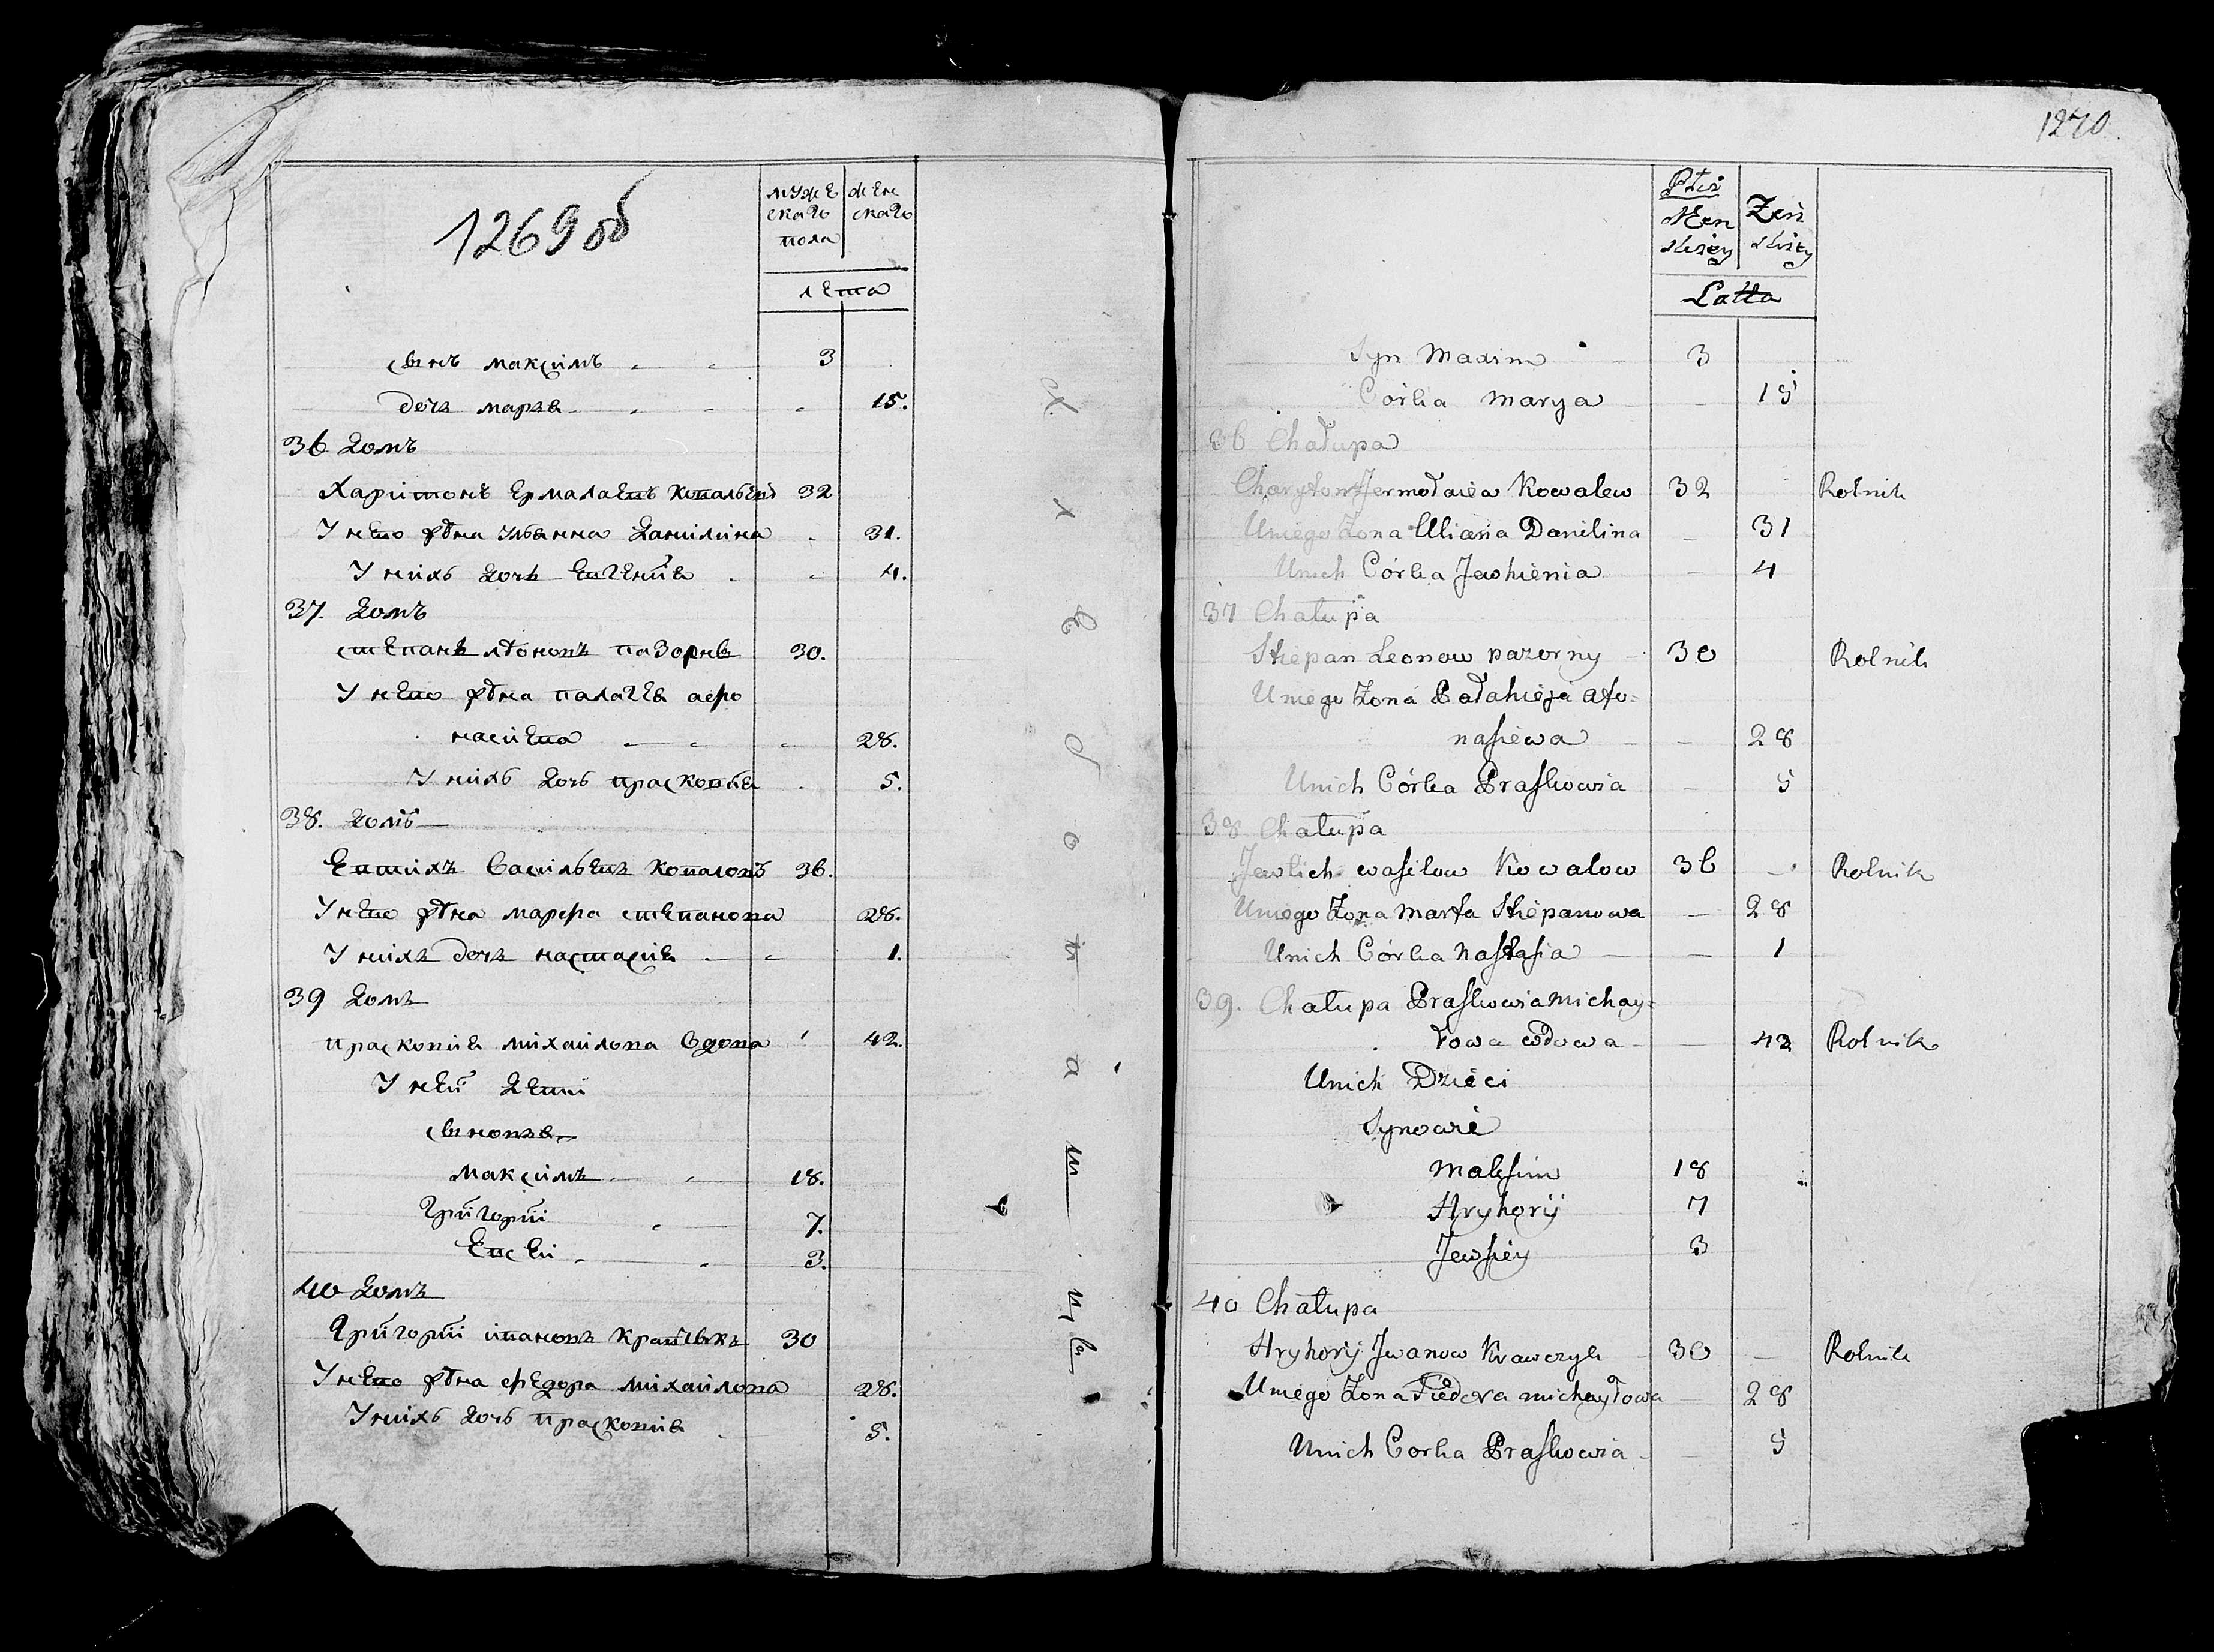 1269 об
муже женс
скаго скаго
пола
лета
сынъ максимъ 3
дочь марья 15.
36 домъ
Харитонъ Ермалаевъ Ковальовъ 32
У него жѣна Ульянна Данилина 31.
У нихъ дочь Евгенйя 4.
37. домъ
степанъ лѣоновъ пазорны 30.
У него жѣна палагея афо
насиева 28.
У нихъ дочь прасковья 5.
38. домъ
Евтихъ Васильевъ Ковалювъ 36.
У него жѣна марфа степанова 28.
У нихъ дочь настасия 1.
39 домъ
прасковия михаилова вдова 42.
У ней дети
сыновья
максимъ 18.
Григории 7.
Евсеи 3.
40 домъ
Григории ивановъ кравчыкъ 30
У него жѣна федора михаилова 28.
У нихъ дочь прасковия 5.
1270
Płci
Męn Żeń
skiey skiey
Latta
Syn Maxim 3
Córka Marya 15
36 Chałupa
Charyton Jermołaiew Kowalew 32 Rolnik
Uniego Żona Uliana Danilina 31
Unich Córka Jewhienia 4
37 Chałupa
Stiepan Leonow pazorny 30 Rolnik
Uniego Żona Pałahieja Afo=
nasiewa 28
Unich Córka Praskowia 5
38 Chałupa
Jewtich wasilow Kowalow 36 Rolnik
Uniego Żona Marfa Stiepanowa 28
Unich Córka Nastasia 1
39. Chałupa Praskowia Michay=
łowa wdowa 42 Rolnik
Unich Dzieci
Synowie
Maksim 18
Hryhorij 7
Jewsiey 3
40 Chałupa
Hryhorij Jwanow Krawczyk 30 Rolnik
Uniego Żona Fiedora michayłowa 28
Unich Corka Praskowia 5